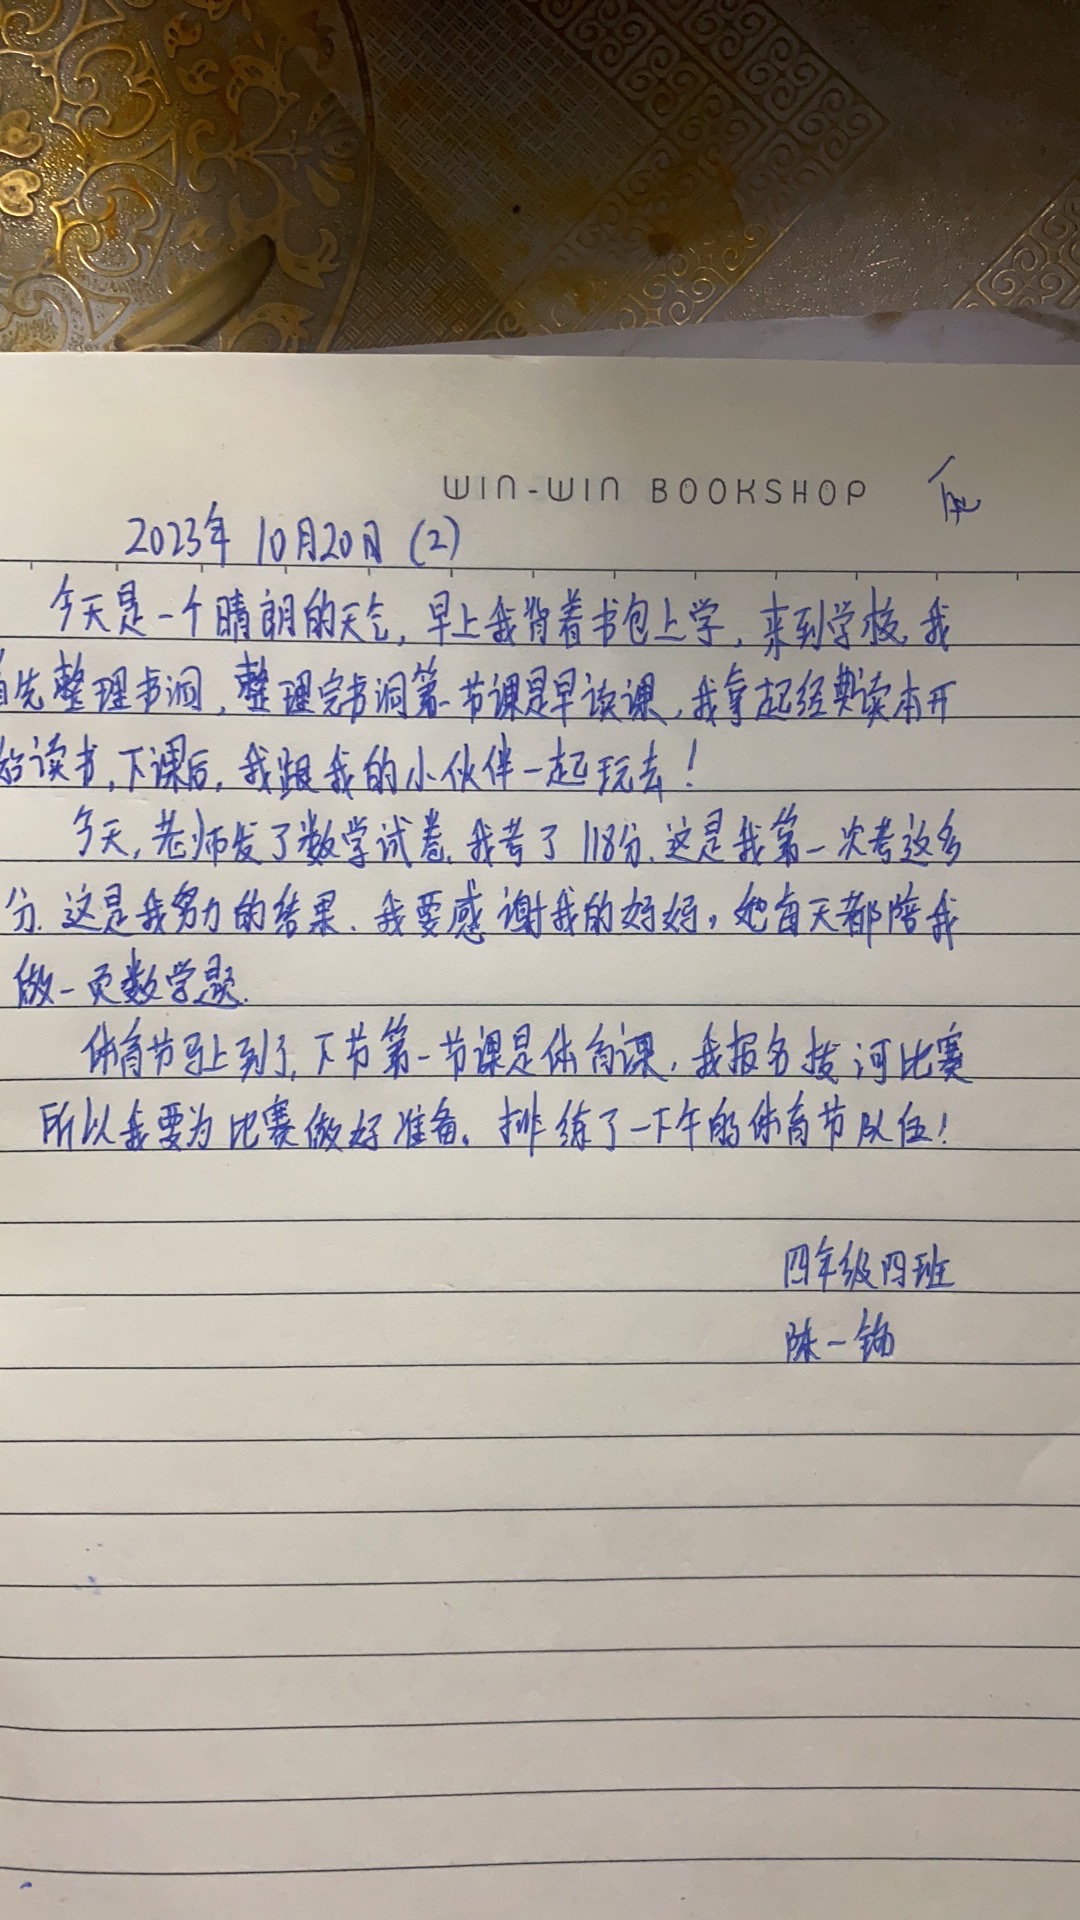 WIN-WIN BOOKSHOP
2023年 10月20日 (2)
今天是一个晴朗的天气,早上我背着书包上学,来到学校,我
首先整理书洞,整理完书洞第一节课是早读课,我拿起经典读本开
始读书,下课后,我跟我的小伙伴一起玩去!
今天,老师发了数学试卷,我考了118分.这是我第一次考这多
分.这是我努力的结果.我要感谢我的妈妈,她每天都陪我
做一页数学题.
体育节马上到了,下节第一节课是体育课,我报名拔河比赛
所以我要为比赛做好准备。排练了一下午的体育节队伍!
四年级四班
陈一